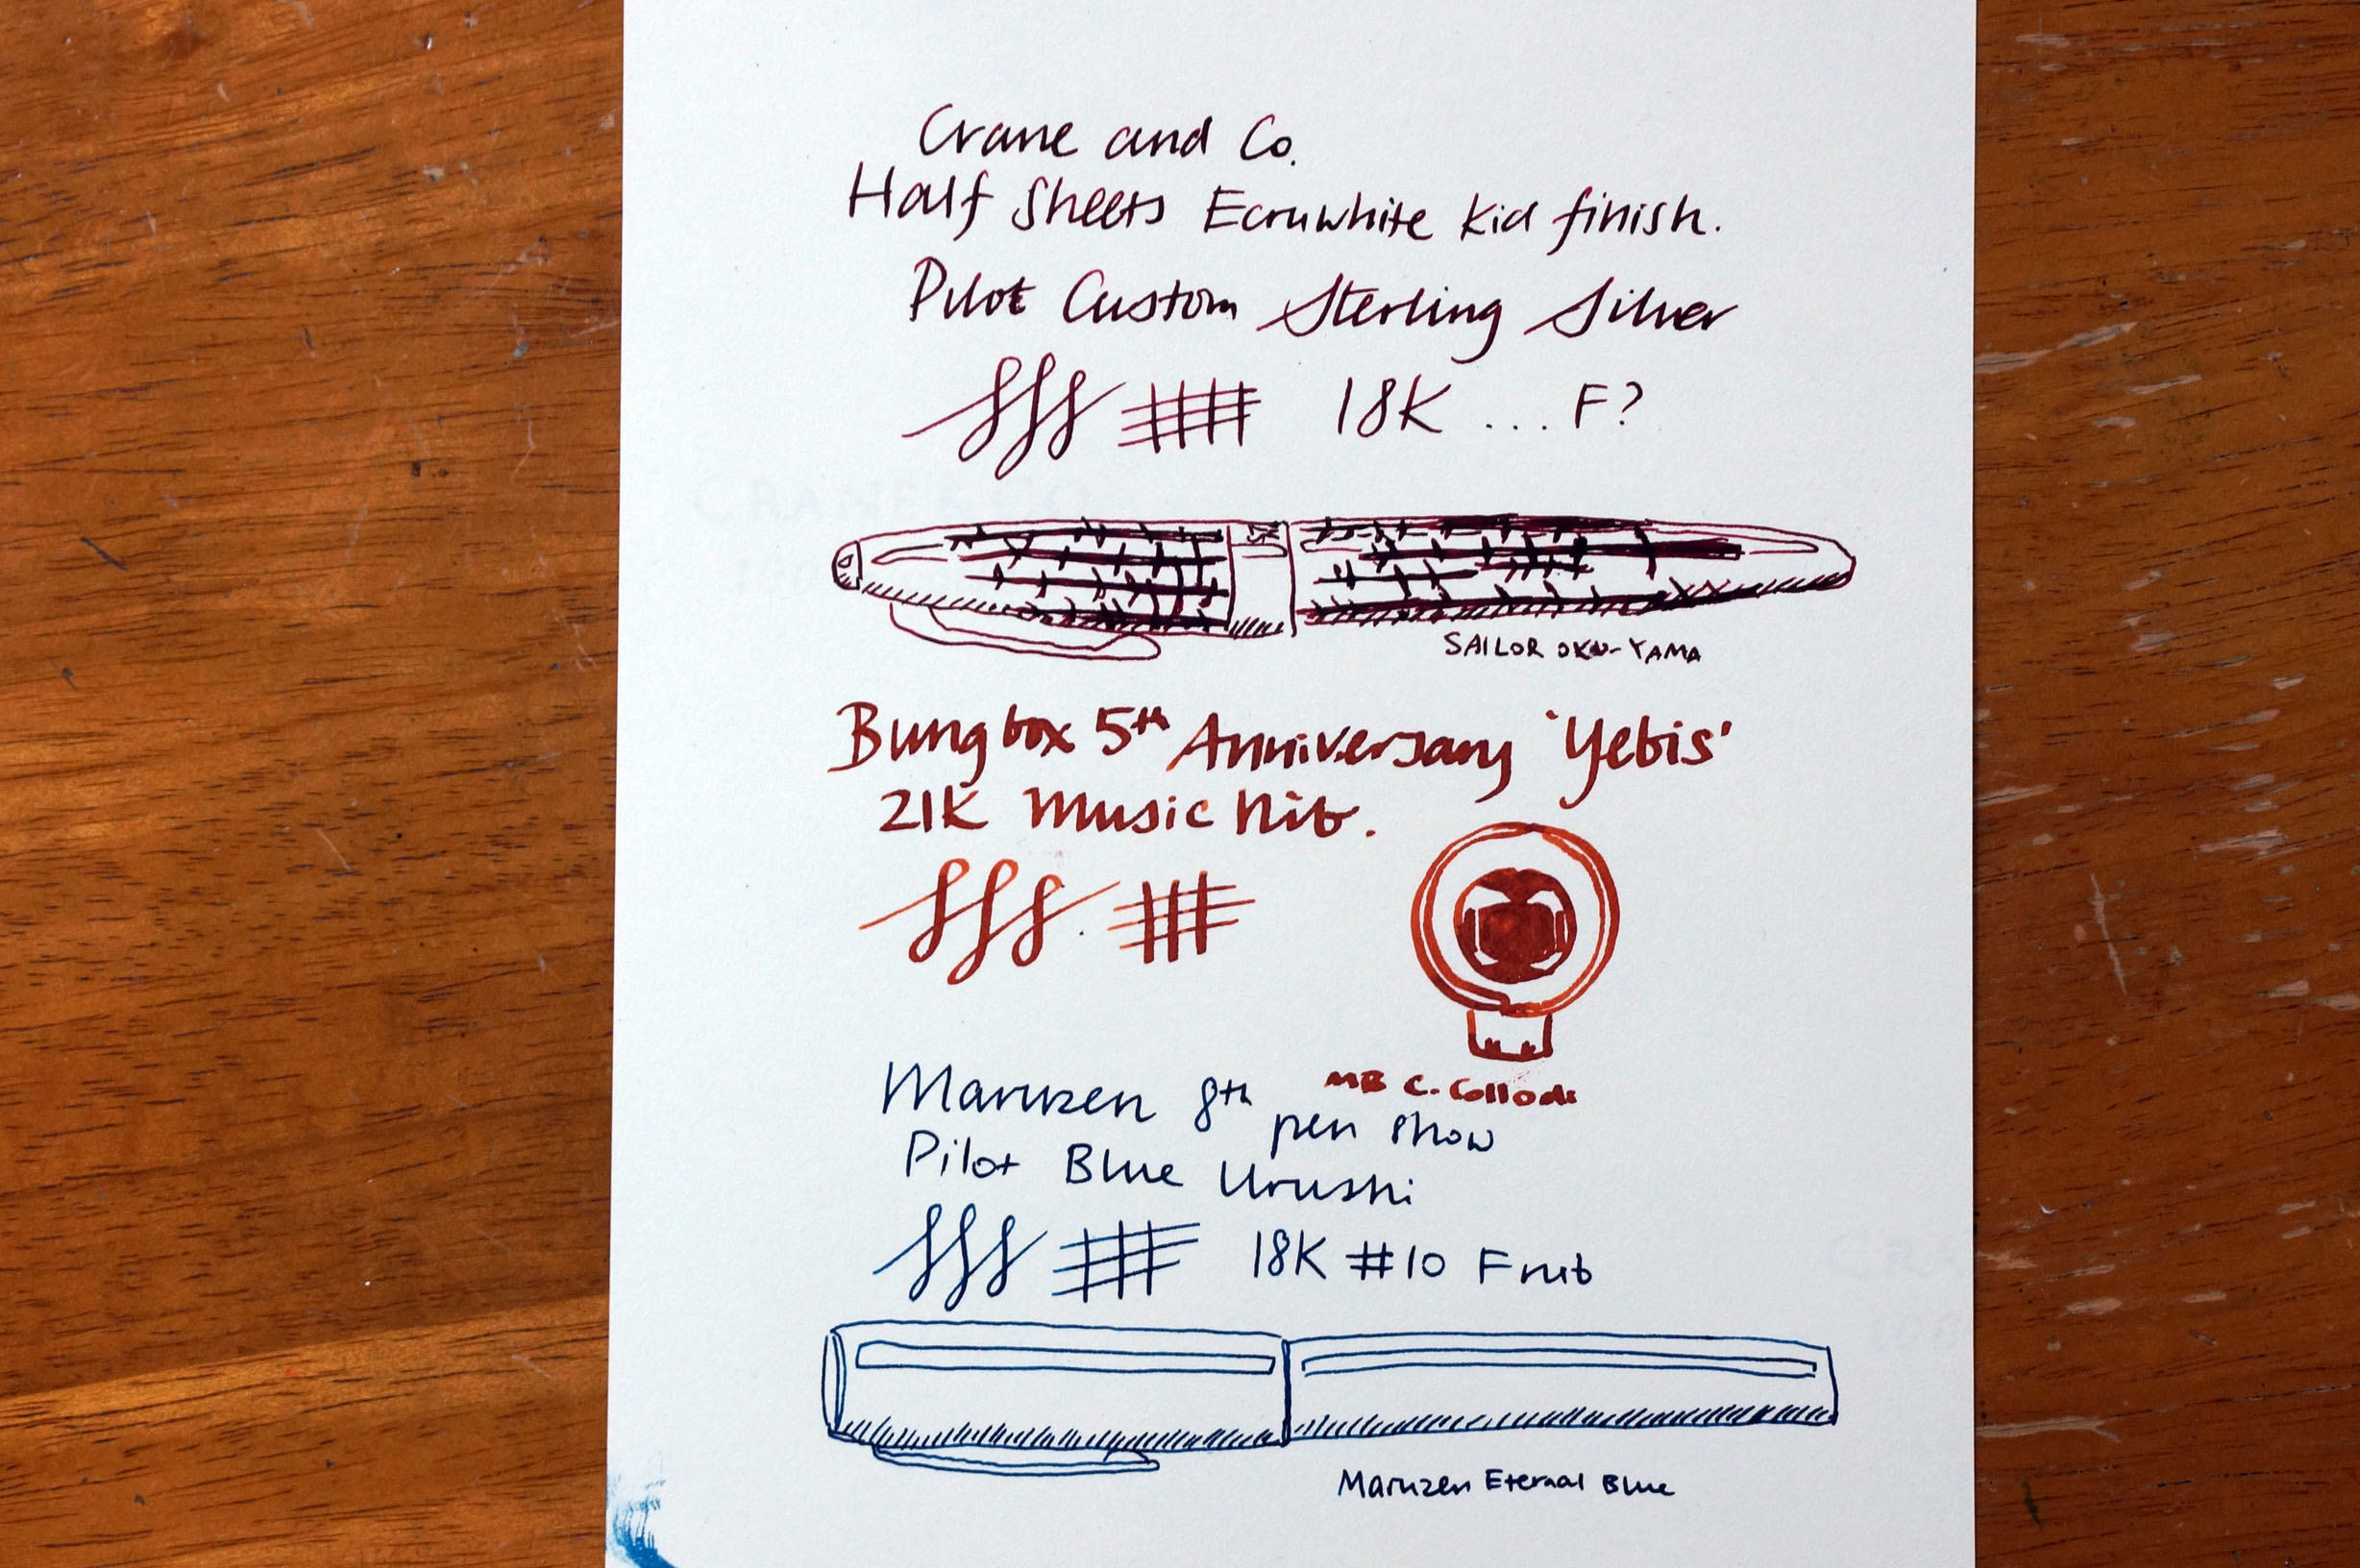 Crane and Co.
Half Sheets Ecruwhite Kid finish.
Pilot Custom Sterling Silver
18K ... F?
CRANE & CO
SAILOR OKU-YAMA
Bungbox 5th Anniversary 'Yebis'
21K Music Nib.
MB C. Collodi
Maruzen 8th pen show
Pilot Blue Urushi
18K #10 F nib
CRA
100
Maruzen Eternal Blue